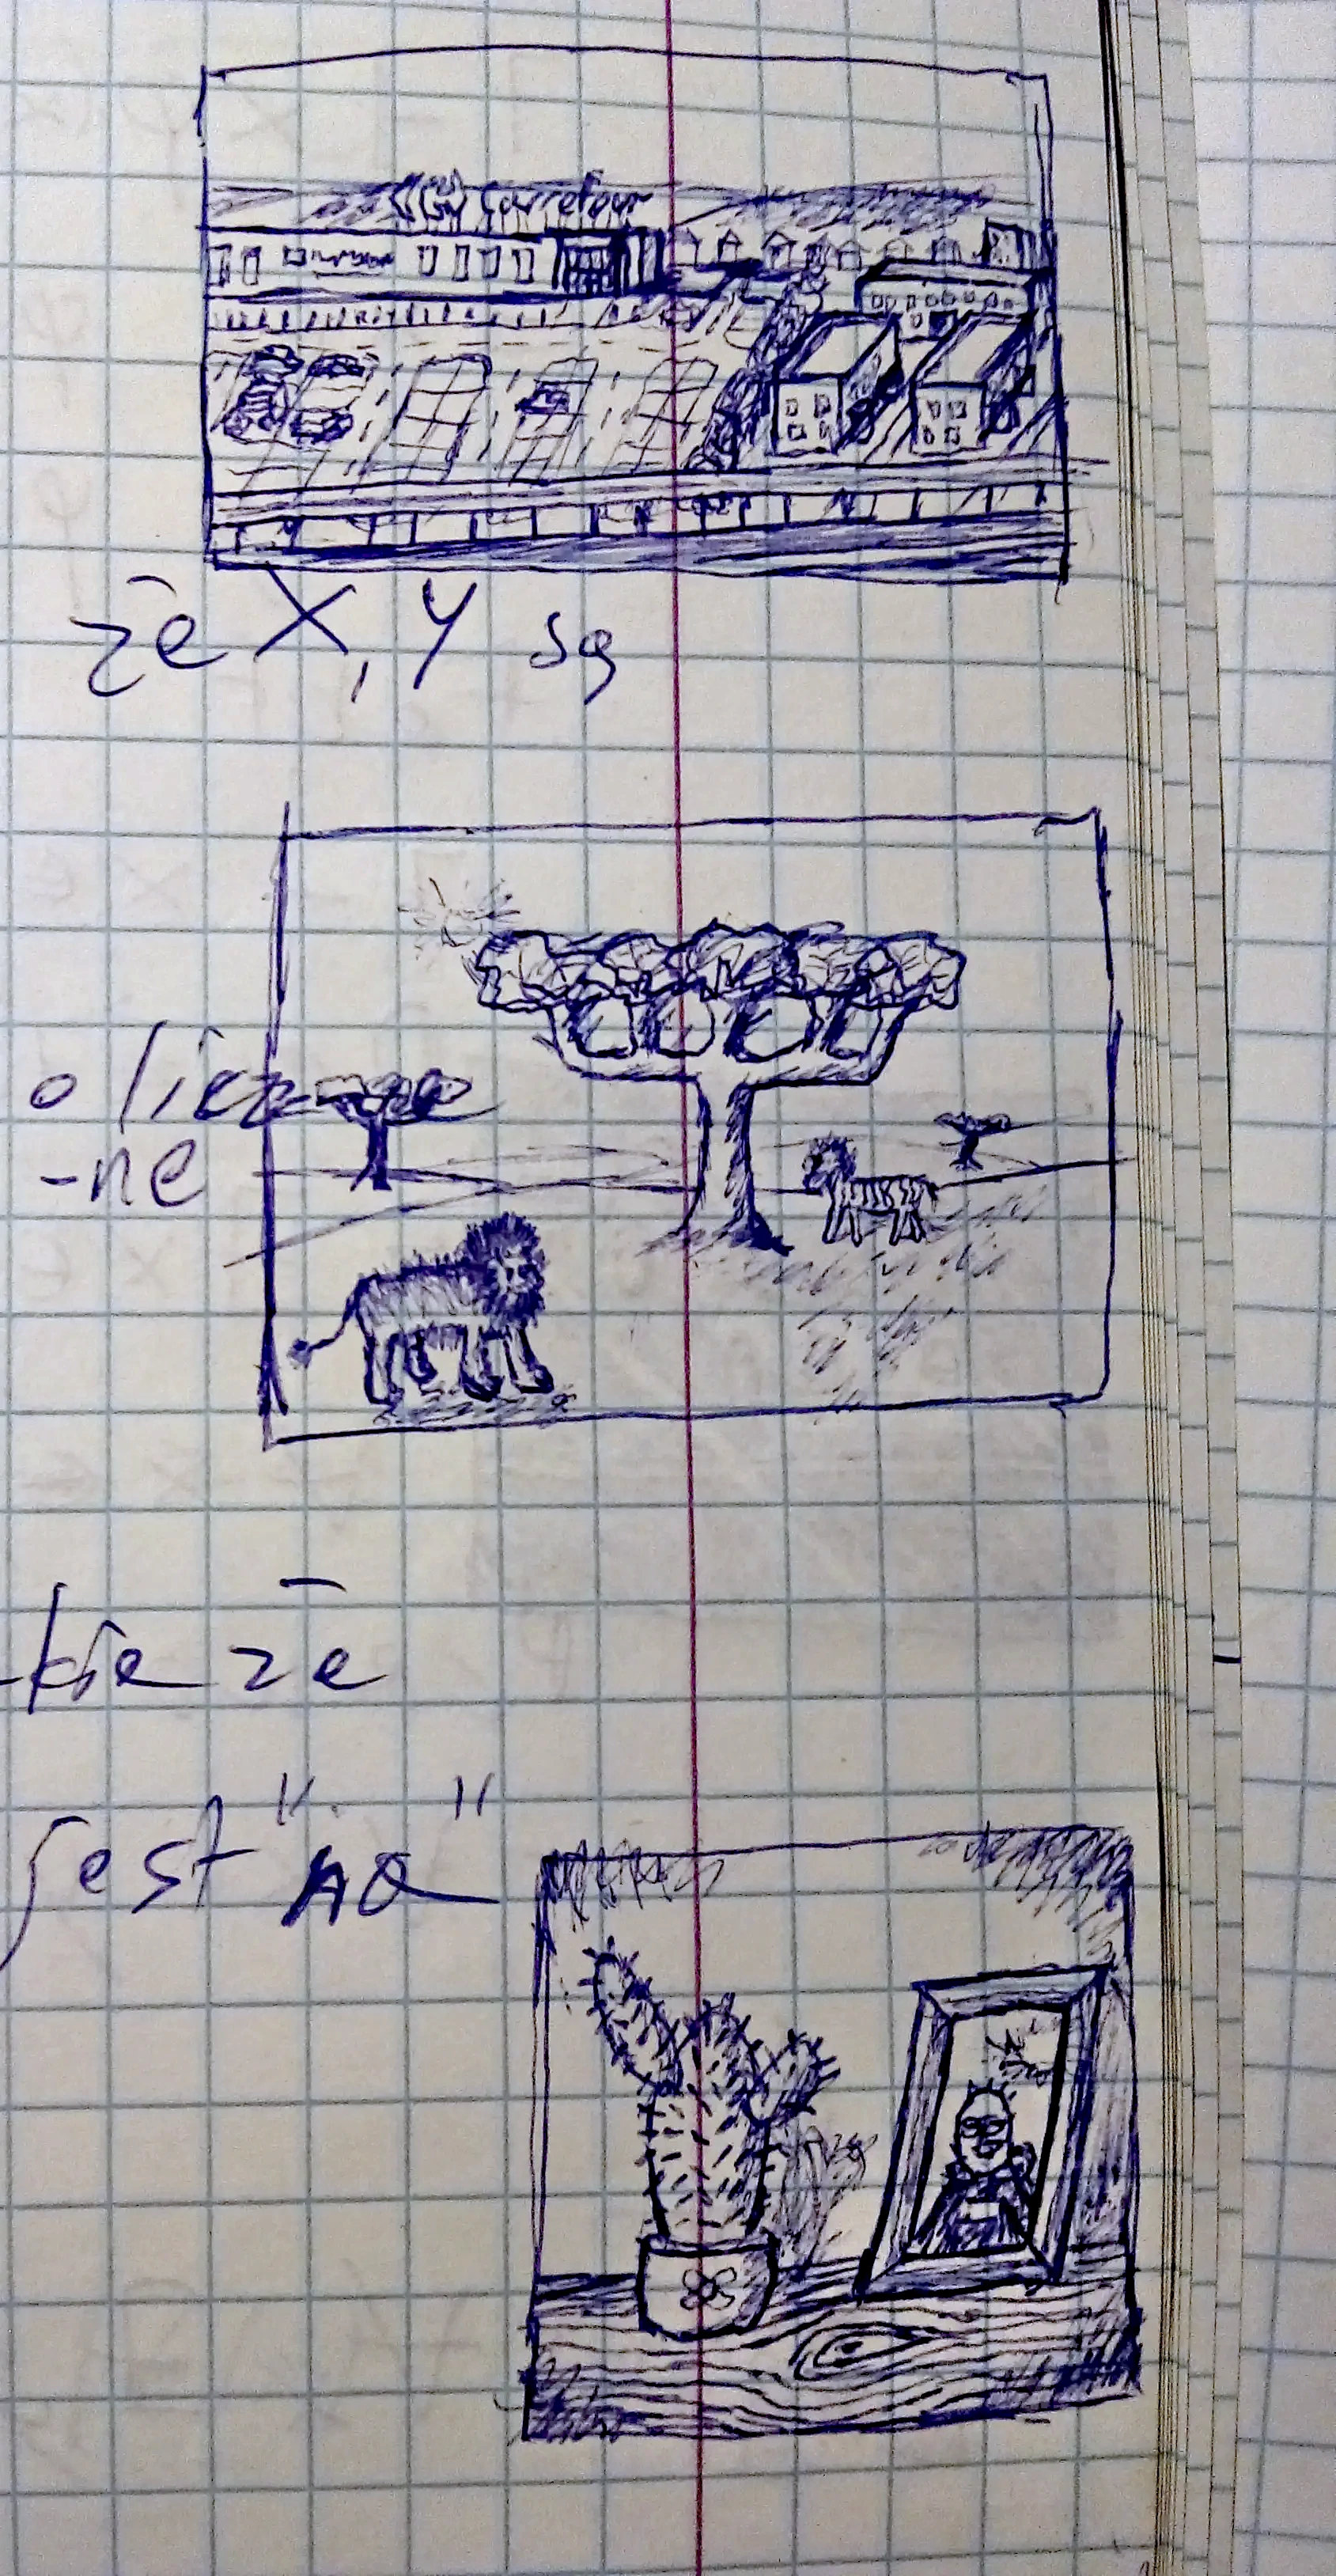 Carrefour
że X, Y są
olicz-
-ne
-kie że
jest "na
"